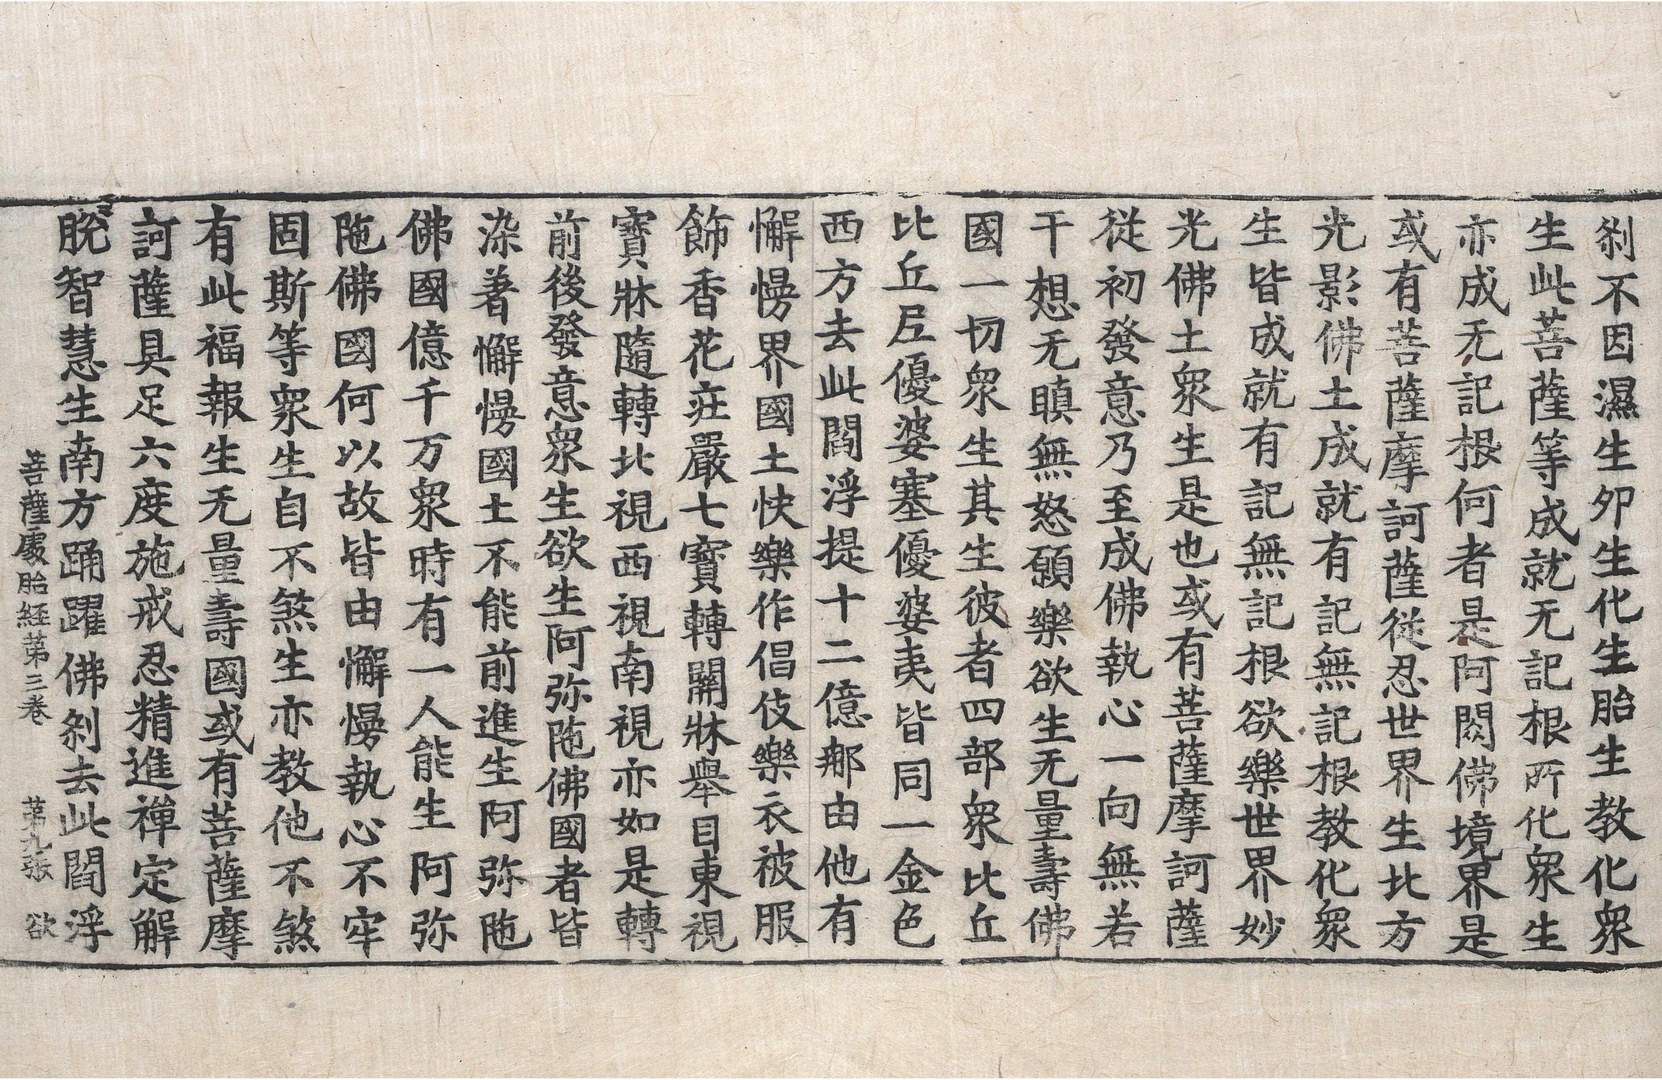 刹不因濕生夘生化生胎生教化衆
生此菩薩等成就无記根所化衆生
亦成无記根何者是阿閦佛境界是
或有菩薩摩訶薩從忍世界生北方
光影佛土成就有記無記根教化衆
生皆成就有記無記根欲樂世界妙
光佛土衆生是也或有菩薩摩訶薩
從初發意乃至成佛執心一向無若
干想无瞋無怒願樂欲生无量壽佛
國一切衆生其生彼者四部衆比丘
比丘尼優婆塞優婆夷皆同一金色
西方去此閻浮提十二億那由他有
懈慢界國土快樂作倡伎樂衣被服
飾香花莊嚴七寶轉關牀舉目東視
寶牀隨轉北視西視南視亦如是轉
前後發意衆生欲生阿弥陁佛國者皆
染著懈慢國土不能前進生阿弥陁
佛國億千万衆時有一人能生阿弥
陁佛國何以故皆由懈慢執心不牢
固斯等衆生自不煞生亦教他不煞
有此福報生无量壽國或有菩薩摩
訶薩具足六度施戒忍精進禪定解
脫智慧生南方踊躍佛刹去此閻浮
菩薩處胎経第三卷　第九張　欲